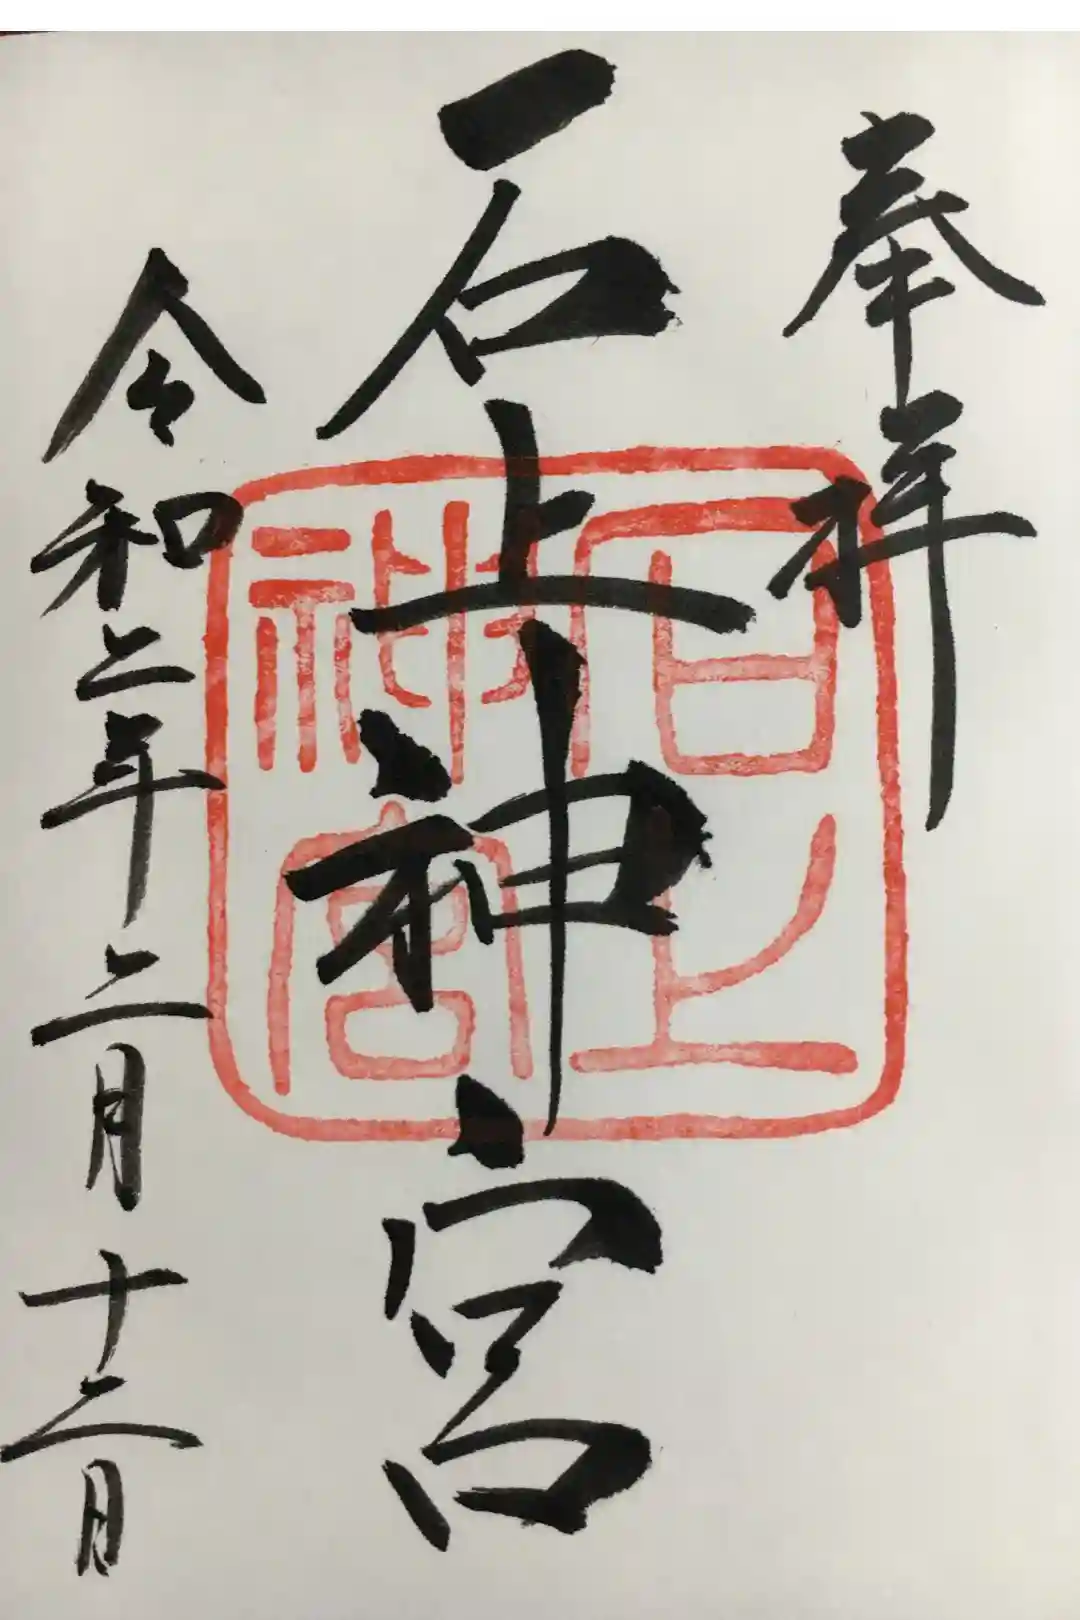 奉拝
石上神宮
石上神宮
令和二年二月十二日